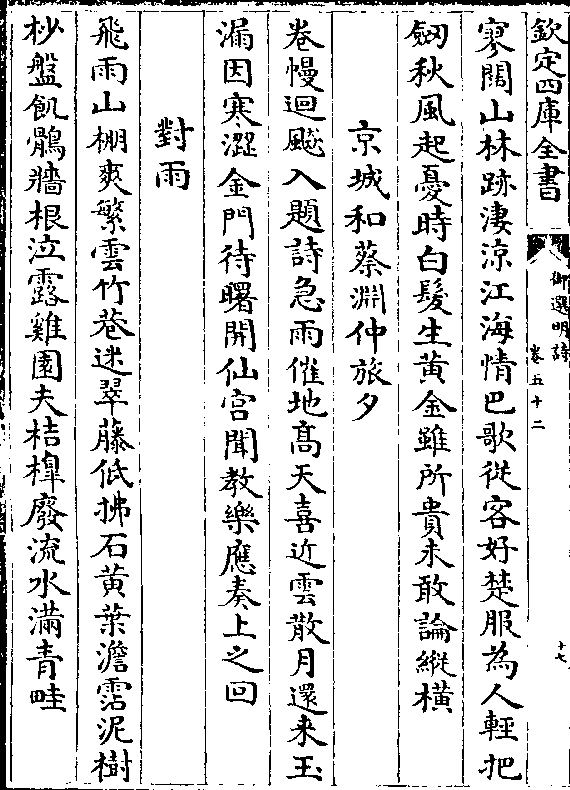 欽定四庫全書
御選明詩
卷五十二
十七
寥闊山林跡淒涼江海情巴歌從客好楚服為人輕把
劒秋風起憂時白髮生黄金雖所貴未敢論縱橫
京城和蔡淵仲旅夕
卷幔迴飈入題詩急雨催地髙天喜近雲散月還来玉
漏因寒澀金門待曙開仙宫聞教樂應奏上之回
對雨
飛雨山棚爽繁雲竹巷迷翠藤低拂石黄葉澹霑泥樹
杪盤飢鶻牆根泣露雞園夫桔橰廢流水滿青畦